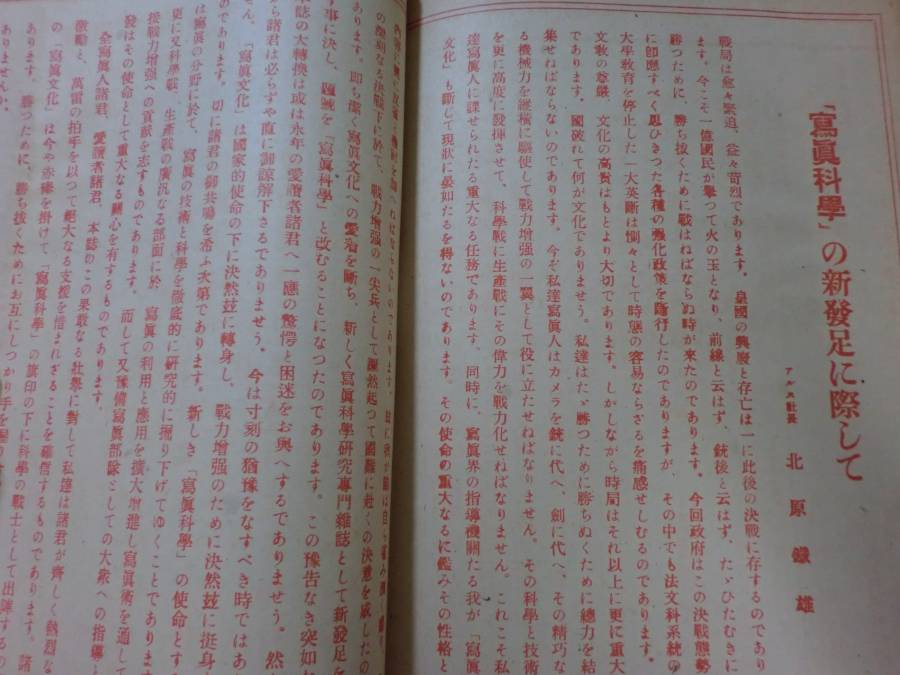 「寫眞科學」の新發足に際して
アルス社長　北原鐵雄
戰局は愈々緊迫、益々苛烈であります。皇國の興廢と存亡は一に此後の決戰に存するのであり
ます。今こそ一億國民が擧つて火の玉となり、前線と云はず、銃後と云はず、たゞひたむきに
勝つために、勝ち拔くために戰はねばならぬ時が來たのであります。今回政府はこの決戰態勢
に卽應すべく思ひきつた各種の强化政策を斷行したのでありますが、その中でも法文科系統の
大半敎育を停止した一大英斷は惻々として時態の容易ならざるを痛感せしむるのであります。
文敎の尊嚴、文化の高貴はもとより大切であります。しかしながら時局はそれ以上に更に重大
であります。國破れて何が文化でありませう。私達はたゞ勝つために勝ちぬくために總力を結
集せねばならないのであります。今ぞ私達寫眞人はカメラを銃に代へ、劍に代へ、その精巧な
る機械力を縱橫に驅使して戰力增强の一翼として役に立たせねばなりません。その科學と技術
を更に高度に發揮させて、科學戰に生產戰にその偉力を戰力化せねばなりません。これこそ私
達寫眞人に課せられたる重大なる任務であります。同時に、寫眞界の指導機關たる我が「寫眞
文化」も斷じて現狀に晏如たるを得ないのであります。その使命の重大なるに鑑みその性格と
の深刻なる決戰下に於て、戰力增强の一尖兵として蹶然起つて國難に赴くの決意を
あります。卽ち潔く寫眞文化への愛着を斷ち、新しく寫眞科學硏究專門雜誌として新發足を
事に決し、題號を「寫眞科學」と改むることになつたのであります。この豫吿なき突如
誌の大轉換は或は永年の愛讀者諸君へ一應の驚愕と困迷をお與へするでありませう。然
ら諸君は必らずや直に御諒解下さるでありませう。今は寸刻の猶豫をなすべき時ではあ
せん。「寫眞文化」は國家的使命の下に決然玆に轉身し、戰力增强のために決然玆に挺身
のであります。切に諸君の御共鳴を希ふ次第であります。新しき「寫眞科學」の使命とす
は寫眞の分野に於て、寫眞の技術と科學を徹底的に硏究的に掘り下げてゆくことであります
更に又科學戰、生產戰の廣汎なる部面に於て寫眞の利用と應用を擴大增進し寫眞術を通し
接戰力增强への貢獻を志すものであります。而して又豫備寫眞部隊としての大衆への指導
發はその使命として重大なる關心を有するものであります。
全寫眞人諸君、愛讀者諸君、本誌のこの果敢なる壯擧に對して私達は諸君が齊しく熱烈な
激勵と、萬雷の拍手を以つて絕大なる支援を惜まれざることを確信するものであります。諸
の「寫眞文化」は今や赤襷を掛けて、「寫眞科學」の旗印の下に科學の戰士として出陣するの
あります。勝つために、勝ち拔くためにお互にしつかり手を
ありませんか。